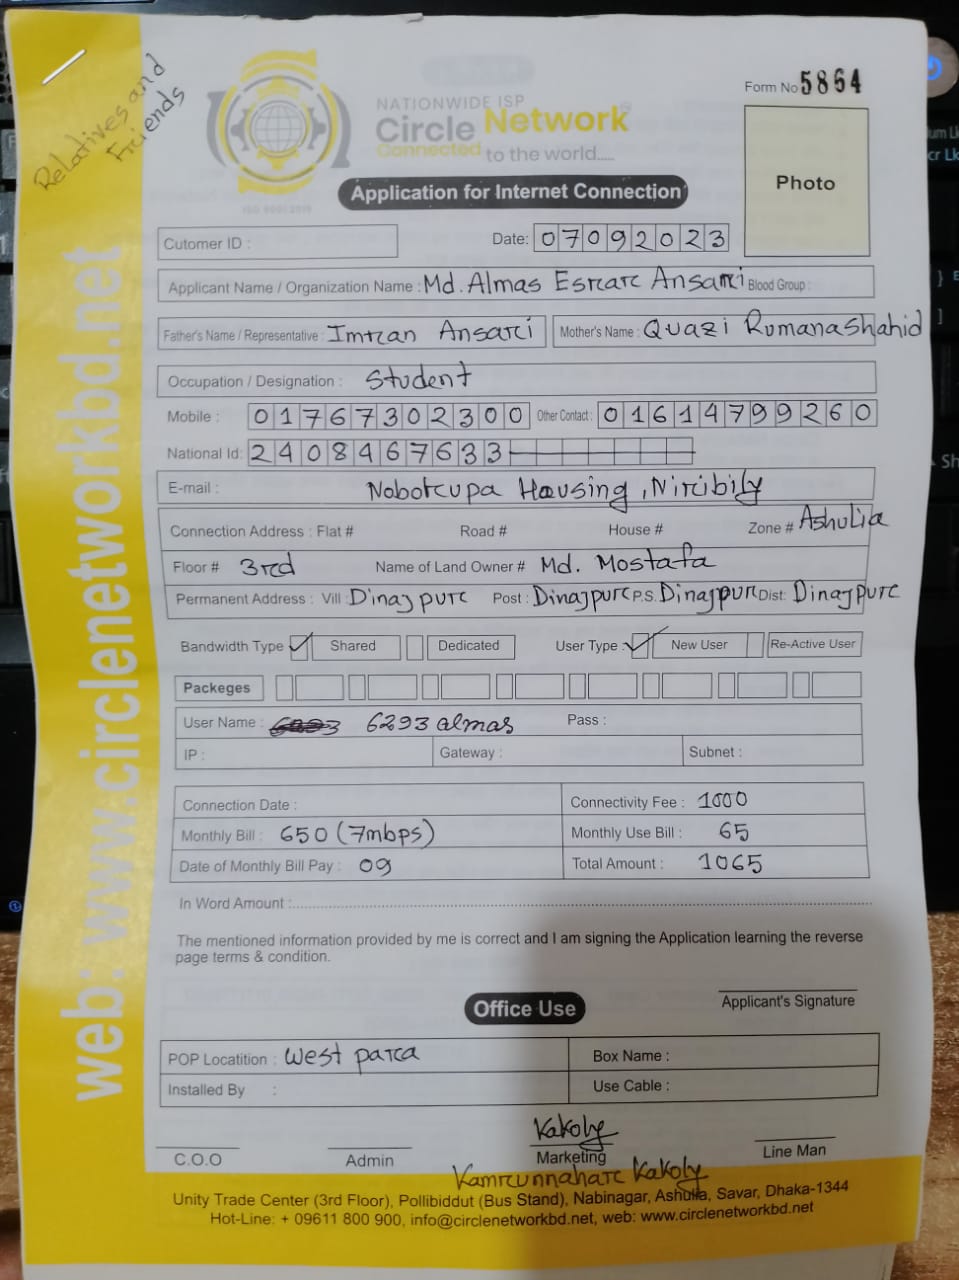 Relatives and
Friends
Form No 5864
NATIONWIDE ISP
Circle Network
Connected to the world.....
ISO 9001:2015
Application for Internet Connection
Photo
Cutomer ID :
Date: 07092023
Applicant Name / Organization Name : Md. Almas Esrar Ansari Blood Group :
Father's Name / Representative : Imran Ansari Mother's Name : Quazi Rumana Shahid
Occupation / Designation : Student
Mobile : 01767302300 Other Contact : 01614799260
National Id: 2408467633
E-mail : Noborupa Housing, Niribily
Connection Address : Flat # Road # House # Zone # Ashulia
Floor # 3rd Name of Land Owner # Md. Mostafa
Permanent Address : Vill : Dinajpur Post : Dinajpur P.S. Dinajpur Dist: Dinajpur
Bandwidth Type Shared Dedicated User Type : New User Re-Active User
Packeges
User Name : 6293almas Pass :
IP : Gateway : Subnet :
Connection Date : Connectivity Fee : 1000
Monthly Bill : 650 (7mbps) Monthly Use Bill : 65
Date of Monthly Bill Pay : 09 Total Amount : 1065
In Word Amount :
The mentioned information provided by me is correct and I am signing the Application learning the reverse
page terms & condition.
Applicant's Signature
Office Use
POP Locatition : West para Box Name :
Installed By : Use Cable :
Kakoly
C.O.O Admin Marketing Line Man
Kamrunnahar Kakoly
Unity Trade Center (3rd Floor), Pollibiddut (Bus Stand), Nabinagar, Ashulia, Savar, Dhaka-1344
Hot-Line: + 09611 800 900, info@circlenetworkbd.net, web: www.circlenetworkbd.net
web: www.circlenetworkbd.net